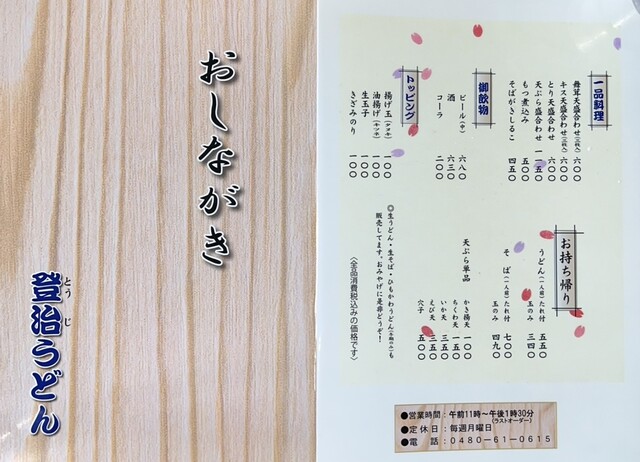 おしながき
登治うどん
とうじ
一品料理
舞茸天盛合わせ(三枚入) 六〇〇
キス天盛合わせ(三枚入) 六〇〇
とり天盛合わせ 六〇〇
天ぷら盛合わせ 一一五〇
もつ煮込み 五〇〇
そばがきしるこ 四五〇
御飲物
ビール(中) 六八〇
酒 六三〇
コーラ 二〇〇
トッピング
揚げ玉(タヌキ) 一〇〇
油揚げ(キツネ) 一〇〇
生玉子 一〇〇
きざみのり 一〇〇
お持ち帰り
うどん(一人前)たれ付 五五〇
玉のみ 三四〇
そば(一人前)たれ付 七〇〇
玉のみ 四九〇
天ぷら単品
かき揚天 一〇〇
ちくわ天 一五〇
いか天 三五〇
えび天 三五〇
穴子 五〇〇
◎生うどん・生そば・ひもかわうどん も
販売してます。おみやげに是非どうぞ!
〈全品消費税込みの価格です〉
●営業時間:午前11時〜午後1時30分
(ラストオーダー)
●定休日:毎週月曜日
●電話:0480-61-0615